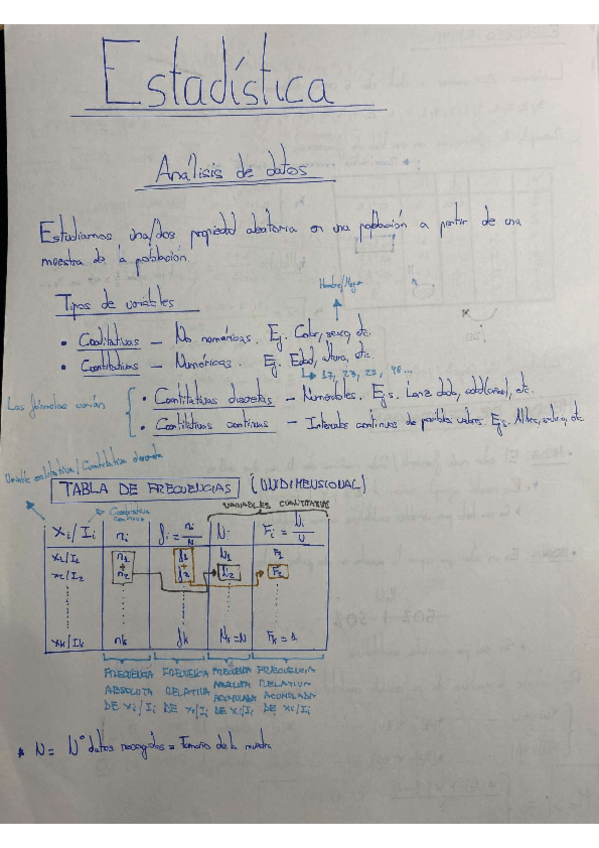 Estadística
Análisis de datos
Estudiamos una/dos propiedad aleatoria en una población a partir de una
muestra de la población.
Hombre/Mujer
Tipos de variables
• Cualitativas — No numéricas. Ej. Color, sexo, etc.
• Cuantitativas — Numéricas. Ej. Edad, altura, etc.
17, 23, 25, 46...
Las fórmulas varían
• Cuantitativas discretas — Numerables. Ejs. Lanz dado, edad(años), etc.
• Cuantitativas continuas — Intervalos continuos de posibles valores. Ejs. Altura, etc.
Variable cualitativa/Cuantitativa discreta
TABLA DE FRECUENCIAS (UNIDIMENSIONAL)
Cuantitativa continua
VARIABLES CUALITATIVAS
xi/Ii ni fi = ni/N Ni Fi = Ni/N
x1/I1 n1 f1 N1 F1
x2/I2 + n2 + f2 N2 F2
xk/Ik nk fk Nk=N Fk=1
FRECUENCIA FRECUENCIA FRECUENCIA FRECUENCIA
ABSOLUTA RELATIVA ABSOLUTA RELATIVA
DE xi/Ii DE xi/Ii ACUMULADA ACUMULADA
DE xi/Ii DE xi/Ii
* N = Nº datos recogidos = Tamaño de la muestra